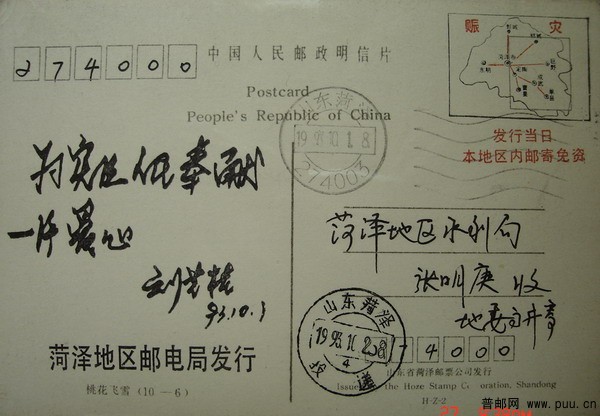 274000
中国人民邮政明信片
Postcard
People's Republic of China
赈 灾
发行当日
本地区内邮寄免资
山东菏泽
1993.10.1.8
274003
一片爱心
93.10.1
菏泽地区邮电局发行
桃花飞雪（10－6）
菏泽地区水利局
张明庚 收
山东菏泽
4
4000
山东省菏泽邮票公司发行
Issued by the Heze Stamp Corporation, Shandong
H-Z-2
普邮网 www.puu.cn